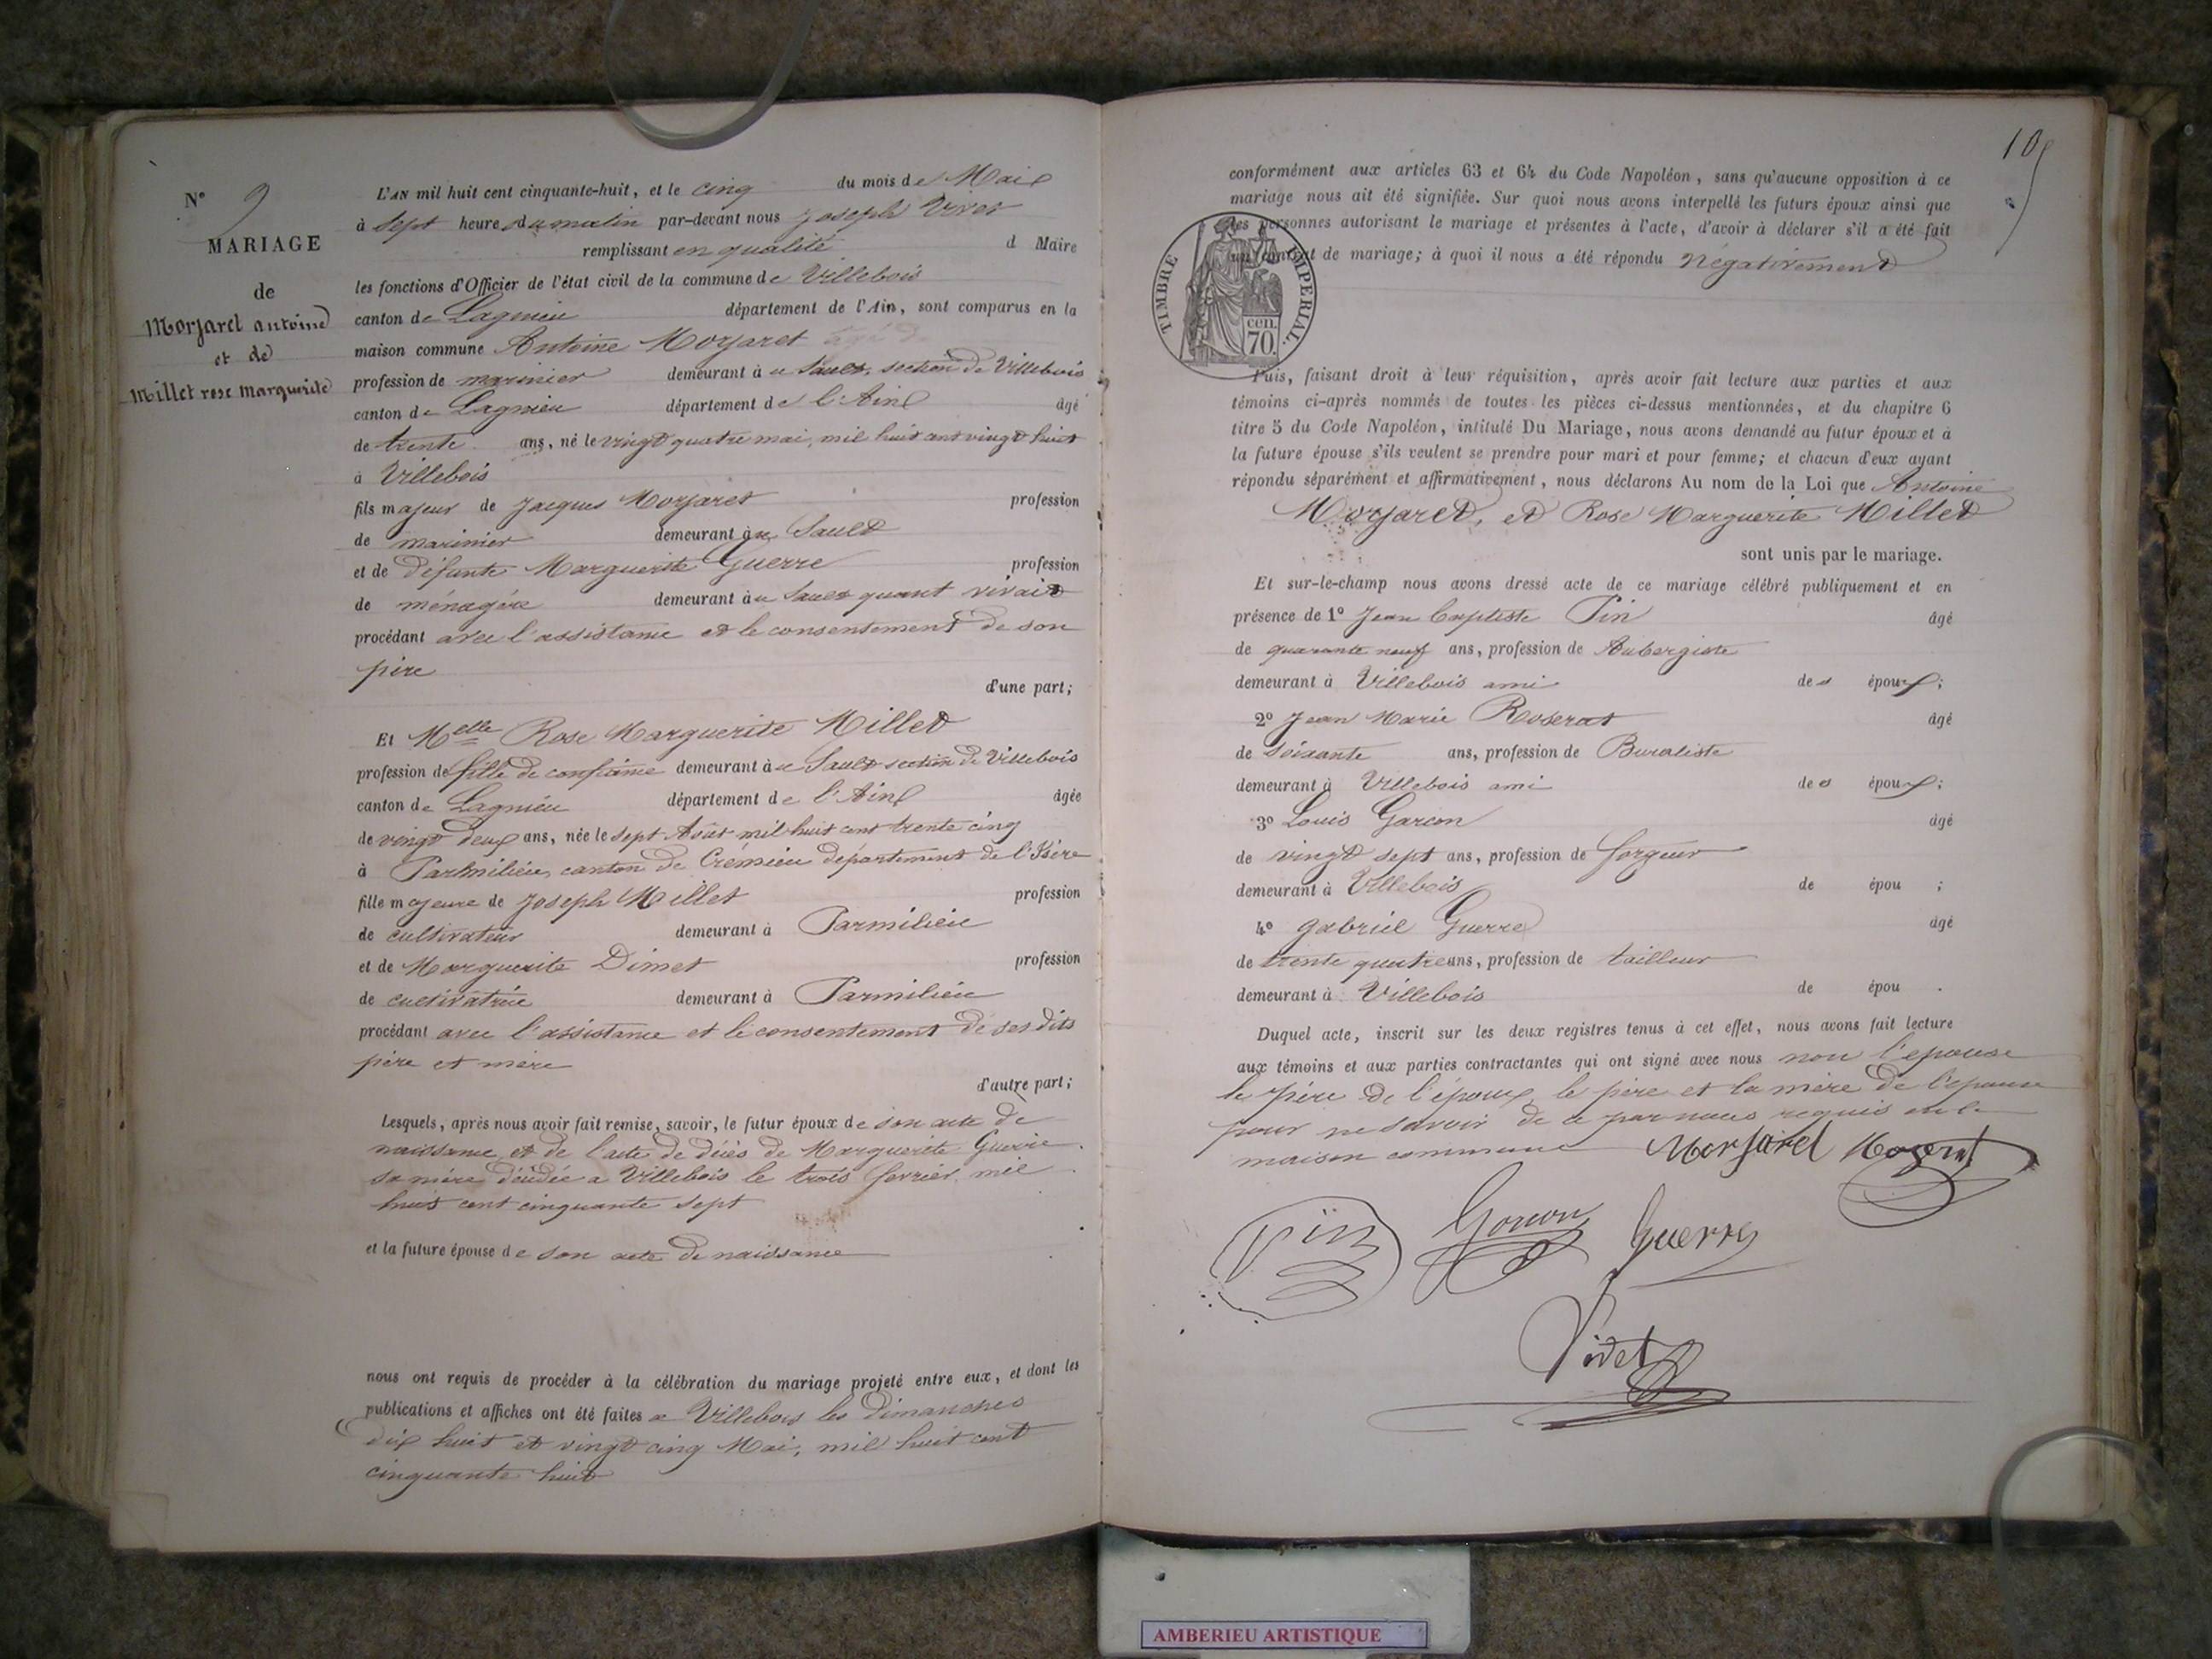 N° 9
MARIAGE
de
Morjaret antoine
et de
Millet rose Marguerite
L'AN mil huit cent cinquante-huit, et le cinq du mois de Mai
à sept heure du matin par-devant nous Joseph
remplissant en qualité d Maire
les fonctions d'Officier de l'état civil de la commune de Villebois
canton de Lagnieu département de l'Ain, sont comparus en la
maison commune Antoine Morjaret
profession de marinier demeurant à u Sault, section de Villebois
canton de Lagnieu département de l'Ain âgé
de trente ans, né le vingt quatre mai, mil huit cent vingt huit
à Villebois
fils majeur de Jacques Morjaret profession
de marinier demeurant àu Sault
et de défunte Marguerite Guerre profession
de ménagère demeurant àu Sault quant vivait
procédant avec l'assistance et le consentement de son
père
d'une part;
Et Melle Rose Marguerite Millet
profession de fille de confiance demeurant àu Sault section de Villebois
canton de Lagnieu département de l'Ain âgée
de vingt deux ans, née le sept Août mil huit cent trente cinq
à Parmilieu, canton de Crémieu département de l'Isère
fille majeure de Joseph Millet profession
de cultivateur demeurant à Parmilieu
et de Marguerite Dimet profession
de cultivatrice demeurant à Parmilieu
procédant avec l'assistance et le consentement de ses dits
père et mère
d'autre part;
Lesquels, après nous avoir fait remise, savoir, le futur époux de son acte de
naissance et de l'acte de décès de Marguerite Guerre
sa mère décédée a Villebois le trois fevrier mil
huit cent cinquante sept
et la future épouse de son acte de naissance
nous ont requis de procéder à la célébration du mariage projeté entre eux, et dont les
publications et affiches ont été faites a Villebois les dimanches
dix huit et vingt cinq Mai, mil huit cent
cinquante huit
10
conformément aux articles 63 et 64 du Code Napoléon, sans qu'aucune opposition à ce
mariage nous ait été signifiée. Sur quoi nous avons interpellé les futurs époux ainsi que
les personnes autorisant le mariage et présentes à l'acte, d'avoir à déclarer s'il a été fait
un contrat de mariage; à quoi il nous a été répondu négativement
TIMBRE IMPERIAL.
cen.
70.
Puis, faisant droit à leur réquisition, après avoir fait lecture aux parties et aux
témoins ci-après nommés de toutes les pièces ci-dessus mentionnées, et du chapitre 6
titre 5 du Code Napoléon, intitulé Du Mariage, nous avons demandé au futur époux et à
la future épouse s'ils veulent se prendre pour mari et pour femme; et chacun d'eux ayant
répondu séparément et affirmativement, nous déclarons Au nom de la Loi que Antoine
Morjaret, et Rose Marguerite Millet
sont unis par le mariage.
Et sur-le-champ nous avons dressé acte de ce mariage célébré publiquement et en
présence de 1° Jean Baptiste Pin âgé
de quarante neuf ans, profession de Aubergiste
demeurant à Villebois ami des époux;
2° Jean Marie Roserat âgé
de soixante ans, profession de Buraliste
demeurant à Villebois ami des époux;
3° Louis Garcon âgé
de vingt sept ans, profession de forgeur
demeurant à Villebois de épou ;
4° gabriel Guerre âgé
de trente quatre ans, profession de tailleur
demeurant à Villebois de épou .
Duquel acte, inscrit sur les deux registres tenus à cet effet, nous avons fait lecture
aux témoins et aux parties contractantes qui ont signé avec nous non l'epouse
le père de l'époux, le père et la mère de l'epouse
pour ne savoir de ce par nous requis en la
maison commune Morjaret
Pin Garcon Guerre
AMBERIEU ARTISTIQUE